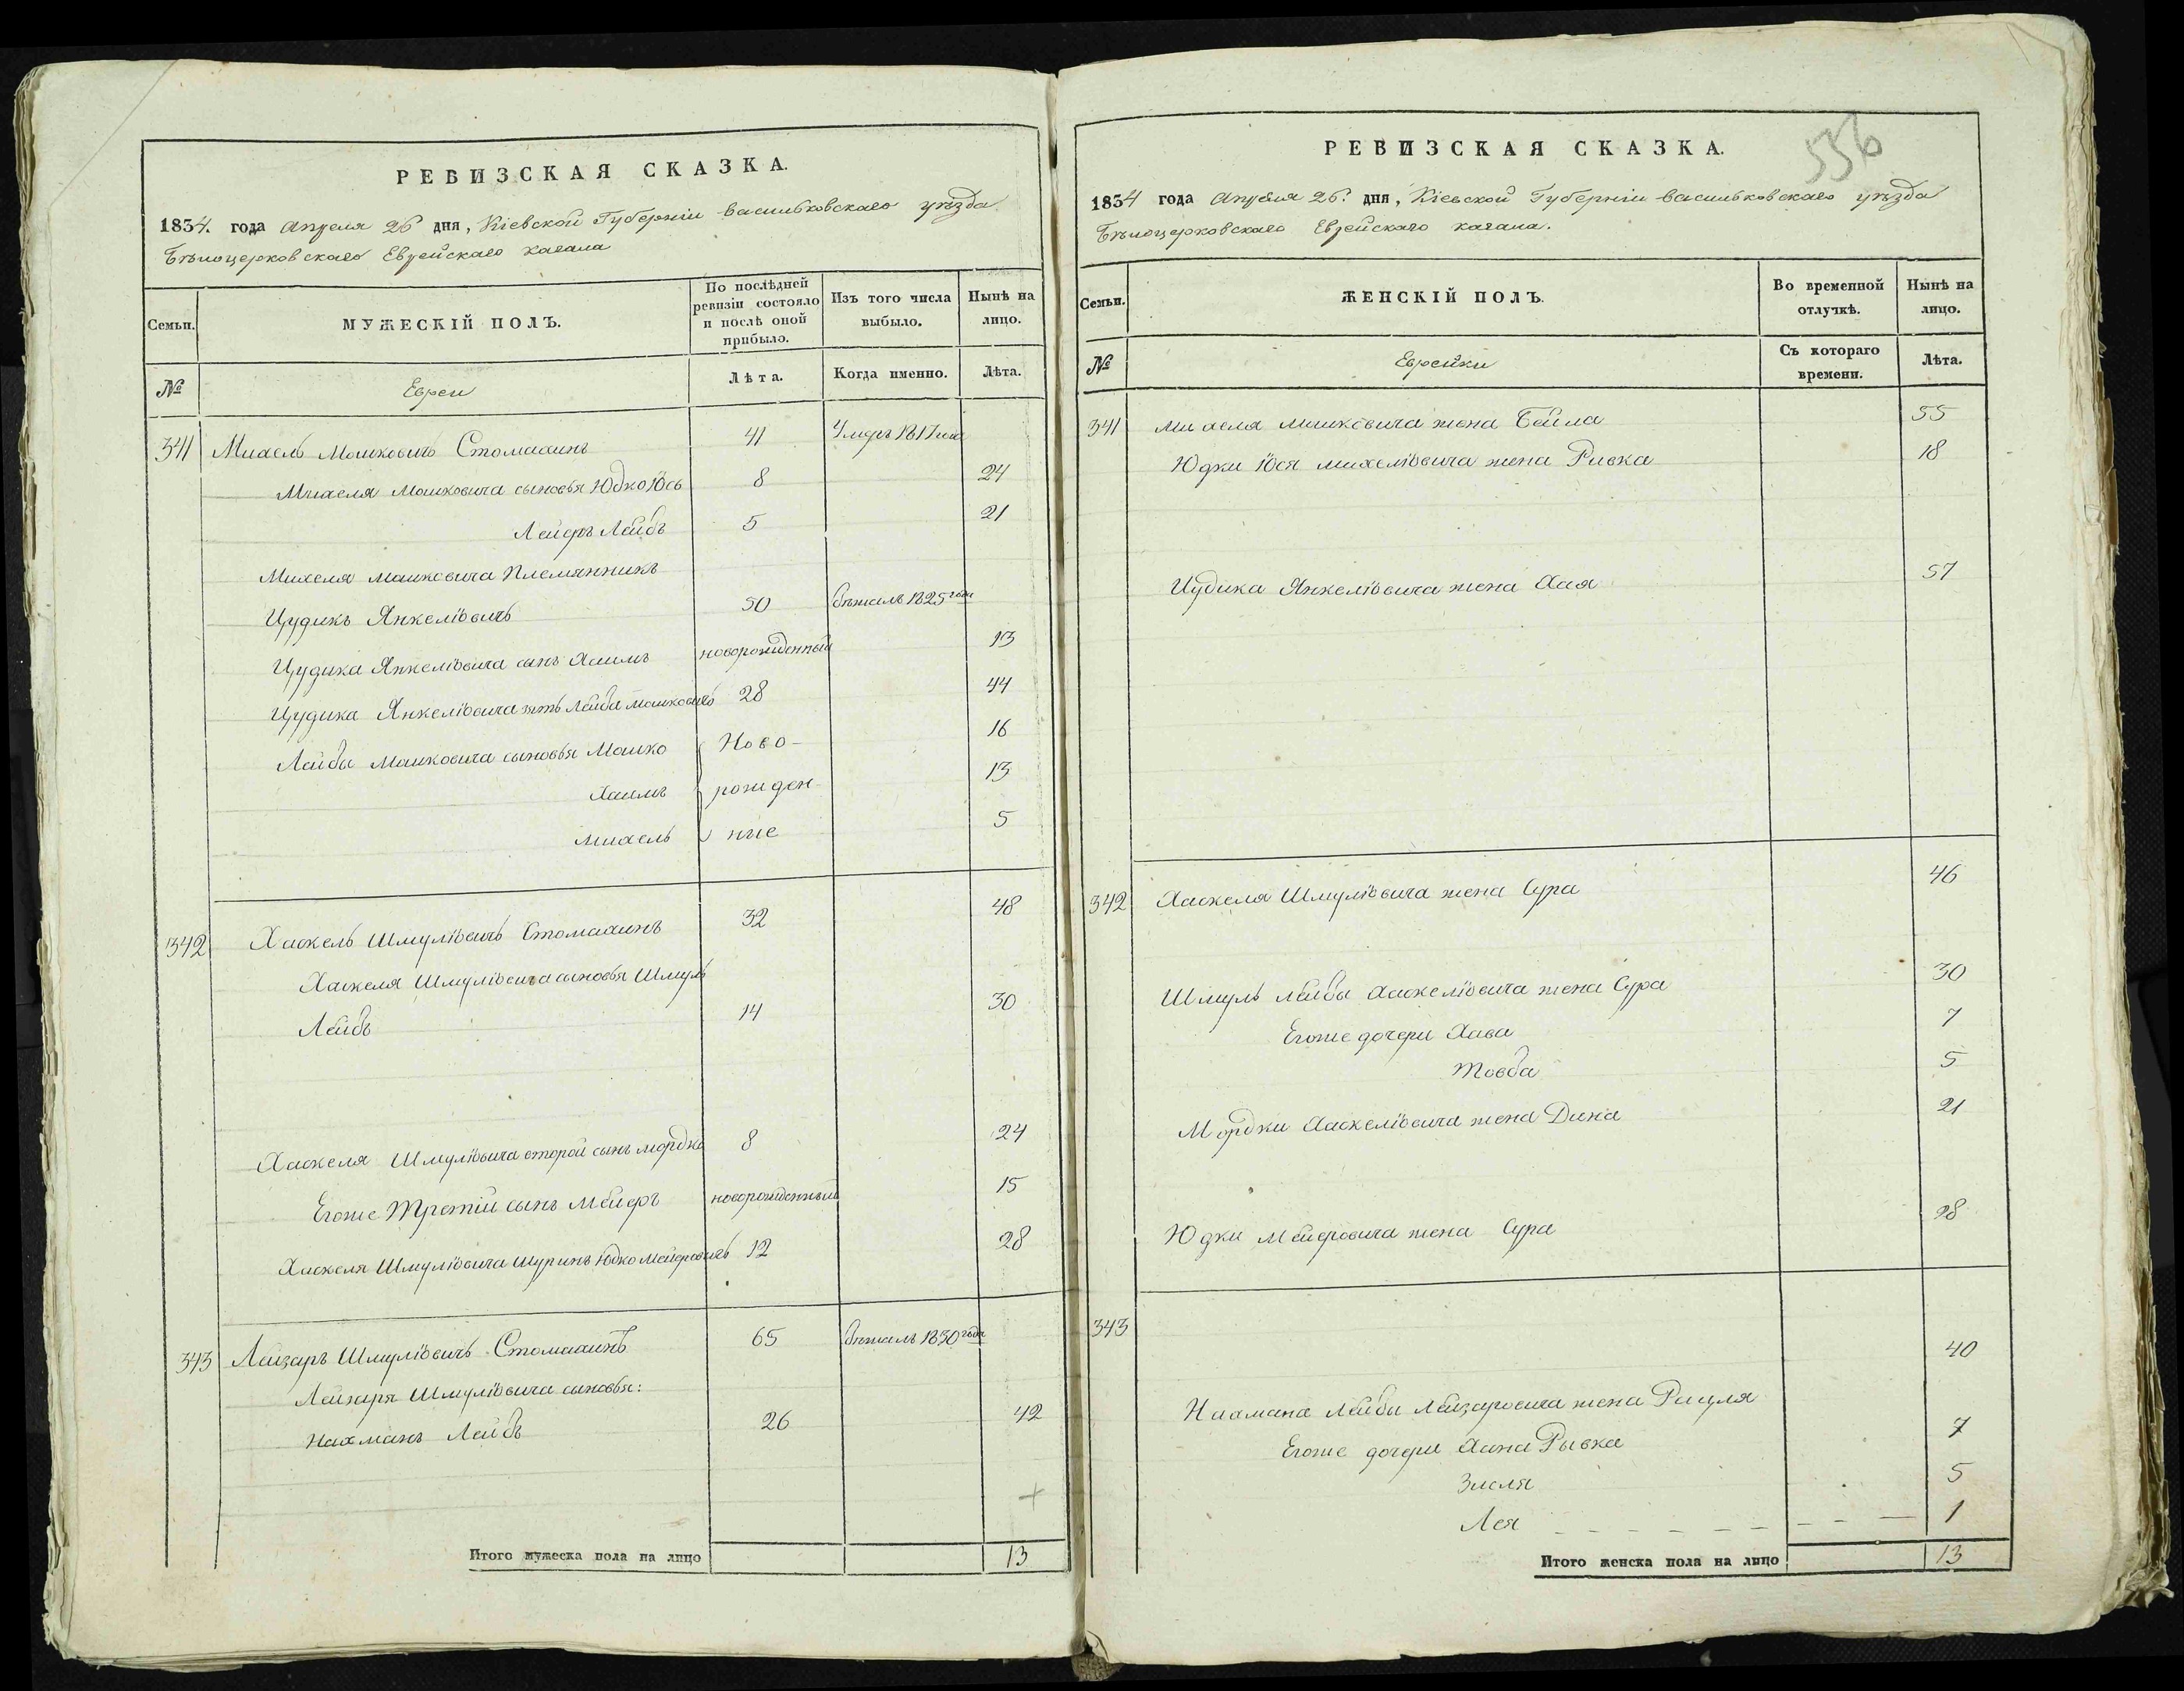 РЕВИЗСКАЯ СКАЗКА.
1834. года Апреля 26 дня, Кіевской Губерніи Васильковскаго уѣзда
Бѣлоцерковскаго Еврейскаго кагала
Семьи.
МУЖЕСКІЙ ПОЛЪ.
По послѣдней ревизіи состояло и послѣ оной прибыло.
Изъ того числа выбыло.
Нынѣ на лицо.
№
Евреи
Лѣта.
Когда именно.
Лѣта.
341 Михель Мошковичъ Стомахинъ 41 Умеръ 1817 года
Михеля Мошковича сыновья Юдко Іось 8 24
Лейбъ 5 21
Михеля Мошковича Племянникъ
Цудикъ Янкеліовичъ 50 бѣжалъ 1825 года
Цудика Янкеліовича сынъ Хаимъ новорожденный 13
Цудика Янкеліовича зять Лейба Мошковичъ 28 44
Лейбы Мошковича сыновья Мошко Ново- 16
Хаимъ рожден- 13
Михель ные 5
342 Хаскель Шмуліовичъ Стомахинъ 32 48
Хаскеля Шмуліовича сыновья Шмуль
Лейбъ 14 30
Хаскеля Шмуліовича второй сынъ Мордко 8 24
Егоже Третій сынъ Мейеръ новорожденный 15
Хаскеля Шмуліовича Шуринъ Юдко Мейеровичъ 12 28
343 Лейзаръ Шмуліовичъ Стомахинъ 65 бѣжалъ 1830 года
Лейзаря Шмуліовича сыновья:
Нахманъ Лейбъ 26 42
Итого мужеска пола на лицо 13
536
РЕВИЗСКАЯ СКАЗКА.
1834 года Апреля 26. дня, Кіевской Губерніи Васильковскаго уѣзда
Бѣлоцерковскаго Еврейскаго кагала.
Семьи.
ЖЕНСКІЙ ПОЛЪ.
Во временной отлучкѣ.
Нынѣ на лицо.
№
Еврейки
Съ котораго времени.
Лѣта.
341 Михеля Мошковича жена Бейла 55
Юдки Іося Михеліовича жена Ривка 18
Цудика Янкеліовича жена Хая 57
342 Хаскеля Шмуліовича жена Сура 46
Шмуль Лейбы Хаскеліовича жена Сура 30
Егоже дочери Хава 7
Товба 5
Мордки Хаскеліовича жена Дина 21
Юдки Мейеровича жена Сура 28
343
40
Нахмана Лейбы Лейзаровича жена Рацля
Егоже дочери Хана Рывка 7
Зисля 5
Лея 1
Итого женска пола на лицо 13